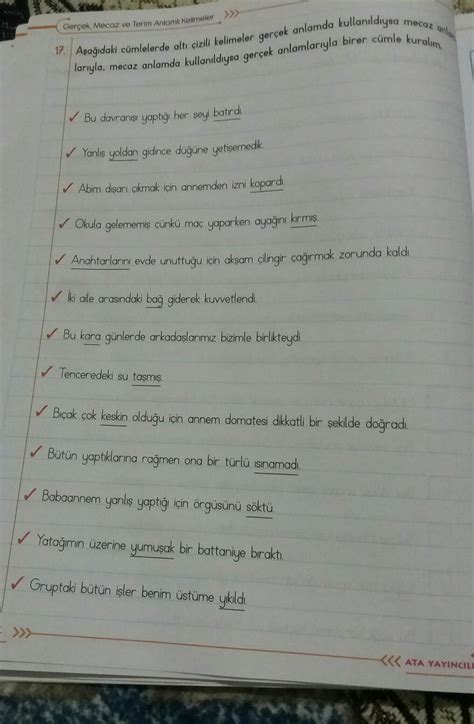 Gerçek, Mecaz ve Terim Anlamlı Kelimeler
17. Aşağıdaki cümlelerde altı çizili kelimeler gerçek anlamda kullanıldıysa mecaz
larıyla, mecaz anlamda kullanıldıysa gerçek anlamlarıyla birer cümle kuralım.
✓ Bu davranışı yaptığı her şeyi batırdı.
✓ Yanlış yoldan gidince düğüne yetişemedik.
✓ Abim dışarı çıkmak için annemden izni kopardı.
✓ Okula gelememiş çünkü maç yaparken ayağını kırmış.
✓ Anahtarlarını evde unuttuğu için akşam çilingir çağırmak zorunda kaldı.
✓ İki aile arasındaki bağ giderek kuvvetlendi.
✓ Bu kara günlerde arkadaşlarımız bizimle birlikteydi.
✓ Tenceredeki su taşmış.
✓ Bıçak çok keskin olduğu için annem domatesi dikkatli bir şekilde doğradı.
✓ Bütün yaptıklarına rağmen ona bir türlü ısınamadı.
✓ Babaannem yanlış yaptığı için örgüsünü söktü.
✓ Yatağımın üzerine yumuşak bir battaniye bıraktı.
✓ Gruptaki bütün işler benim üstüme yıkıldı.
ATA YAYINCILI